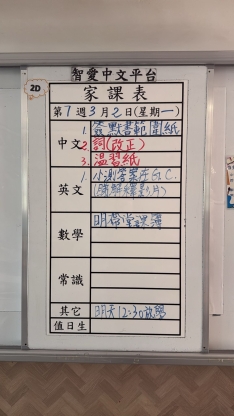 2D
智愛中文平台
家課表
第7週3月2日(星期一)
中文
1. 簽默書範圍紙
2. 詞(改正)
3. 溫習紙
英文
1. 小測答案在G.C.
數學
明帶堂課簿
常識
其它
明天12:30放學
值日生